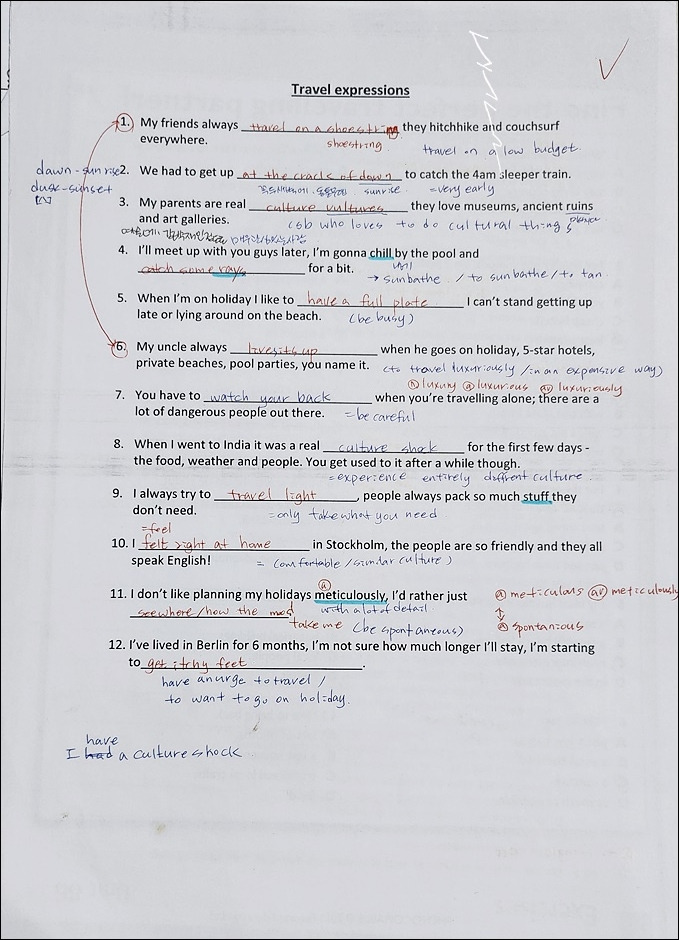 Travel expressions
1. My friends always travel on a shoestring they hitchhike and couchsurf
everywhere. shoestring travel on a low budget.
dawn - sunrise
dusk - sunset
2. We had to get up at the crack of down to catch the 4am sleeper train.
sunrise. =very early
3. My parents are real culture vultures they love museums, ancient ruins
and art galleries. (sb who loves to do cultural things
4. I'll meet up with you guys later, I'm gonna chill by the pool and
catch some rays for a bit. → sunbathe / to sunbathe / to tan
5. When I'm on holiday I like to have a full plate I can't stand getting up
late or lying around on the beach. (be busy)
6. My uncle always lives it up when he goes on holiday, 5-star hotels,
private beaches, pool parties, you name it. (to travel luxuriously / in an expensive way)
ⓝ luxury ⓐ luxurious ⓐⓥ luxuriously
7. You have to watch your back when you're travelling alone; there are a
lot of dangerous people out there. = be careful
8. When I went to India it was a real culture shock for the first few days -
the food, weather and people. You get used to it after a while though.
=experience entirely diffrent culture.
9. I always try to travel light, people always pack so much stuff they
don't need. =only take what you need.
=feel
10. I felt right at home in Stockholm, the people are so friendly and they all
speak English! = comfortable / similar culture)
ⓐ
11. I don't like planning my holidays meticulously, I'd rather just
ⓐ meticulous ⓐⓥ meticulously
see where / how the mood with a lot of detail
take me (be spontaneous) ↕ ⓐ spontanious
12. I've lived in Berlin for 6 months, I'm not sure how much longer I'll stay, I'm starting
to get itchy feet.
have an urge to travel /
to want to go on holiday.
have
I had a culture shock